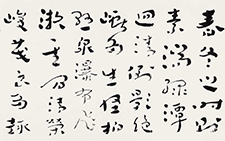 春冬之时则
素湍绿潭
回清倒影绝
巘多生怪柏
悬泉瀑布飞
漱其间清荣
峻茂良多趣